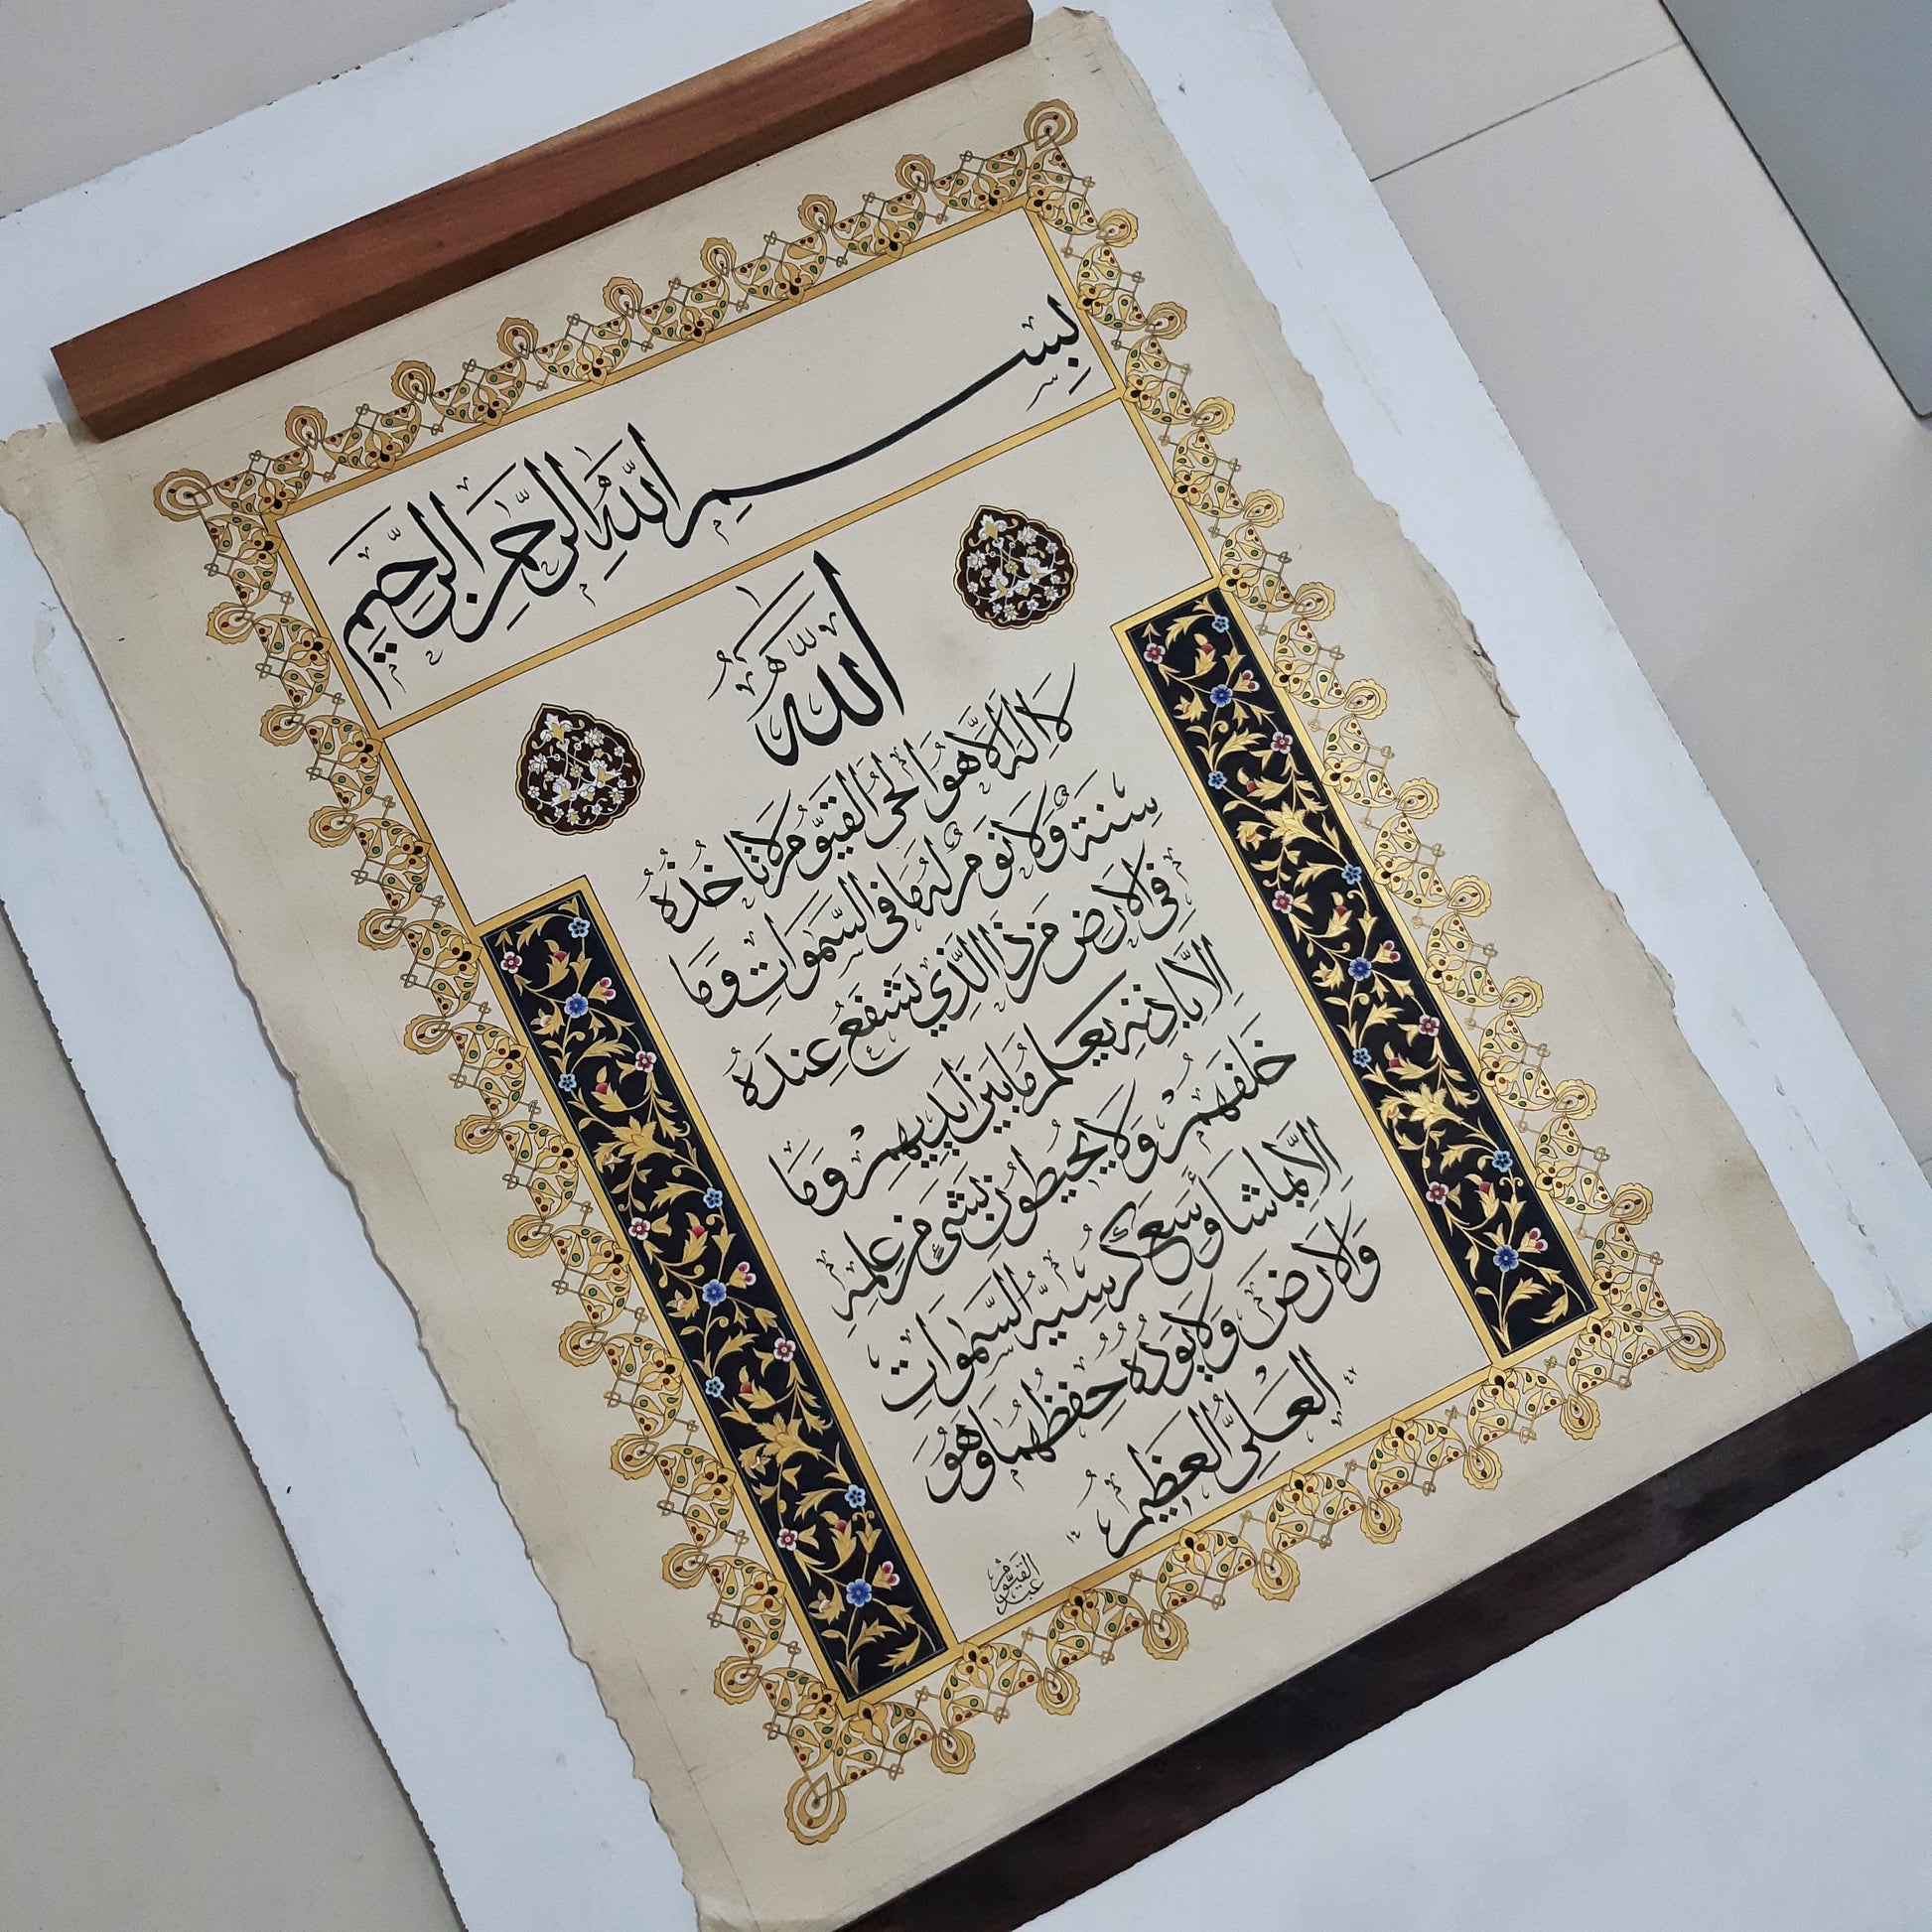 بِسْمِ اللّٰهِ الرَّحْمٰنِ الرَّحِيْمِ
اَللّٰهُ
لَا اِلٰهَ اِلَّا هُوَ الْحَىُّ الْقَيُّوْمُ لَا تَاْخُذُهٗ
سِنَةٌ وَّلَا نَوْمٌ لَهٗ مَا فِى السَّمٰوَاتِ وَمَا
فِى الْاَرْضِ مَنْ ذَا الَّذِي يَشْفَعُ عِنْدَهٗ
اِلَّا بِاِذْنِهٖ يَعْلَمُ مَا بَيْنَ اَيْدِيْهِمْ وَمَا
خَلْفَهُمْ وَلَا يُحِيْطُوْنَ بِشَىْءٍ مِنْ عِلْمِهٖ
اِلَّا بِمَا شَاءَ وَسِعَ كُرْسِيُّهُ السَّمٰوَاتِ
وَالْاَرْضَ وَلَا يَؤُدُهٗ حِفْظُهُمَا وَهُوَ
الْعَلِىُّ الْعَظِيْمُ
عبد القيوم